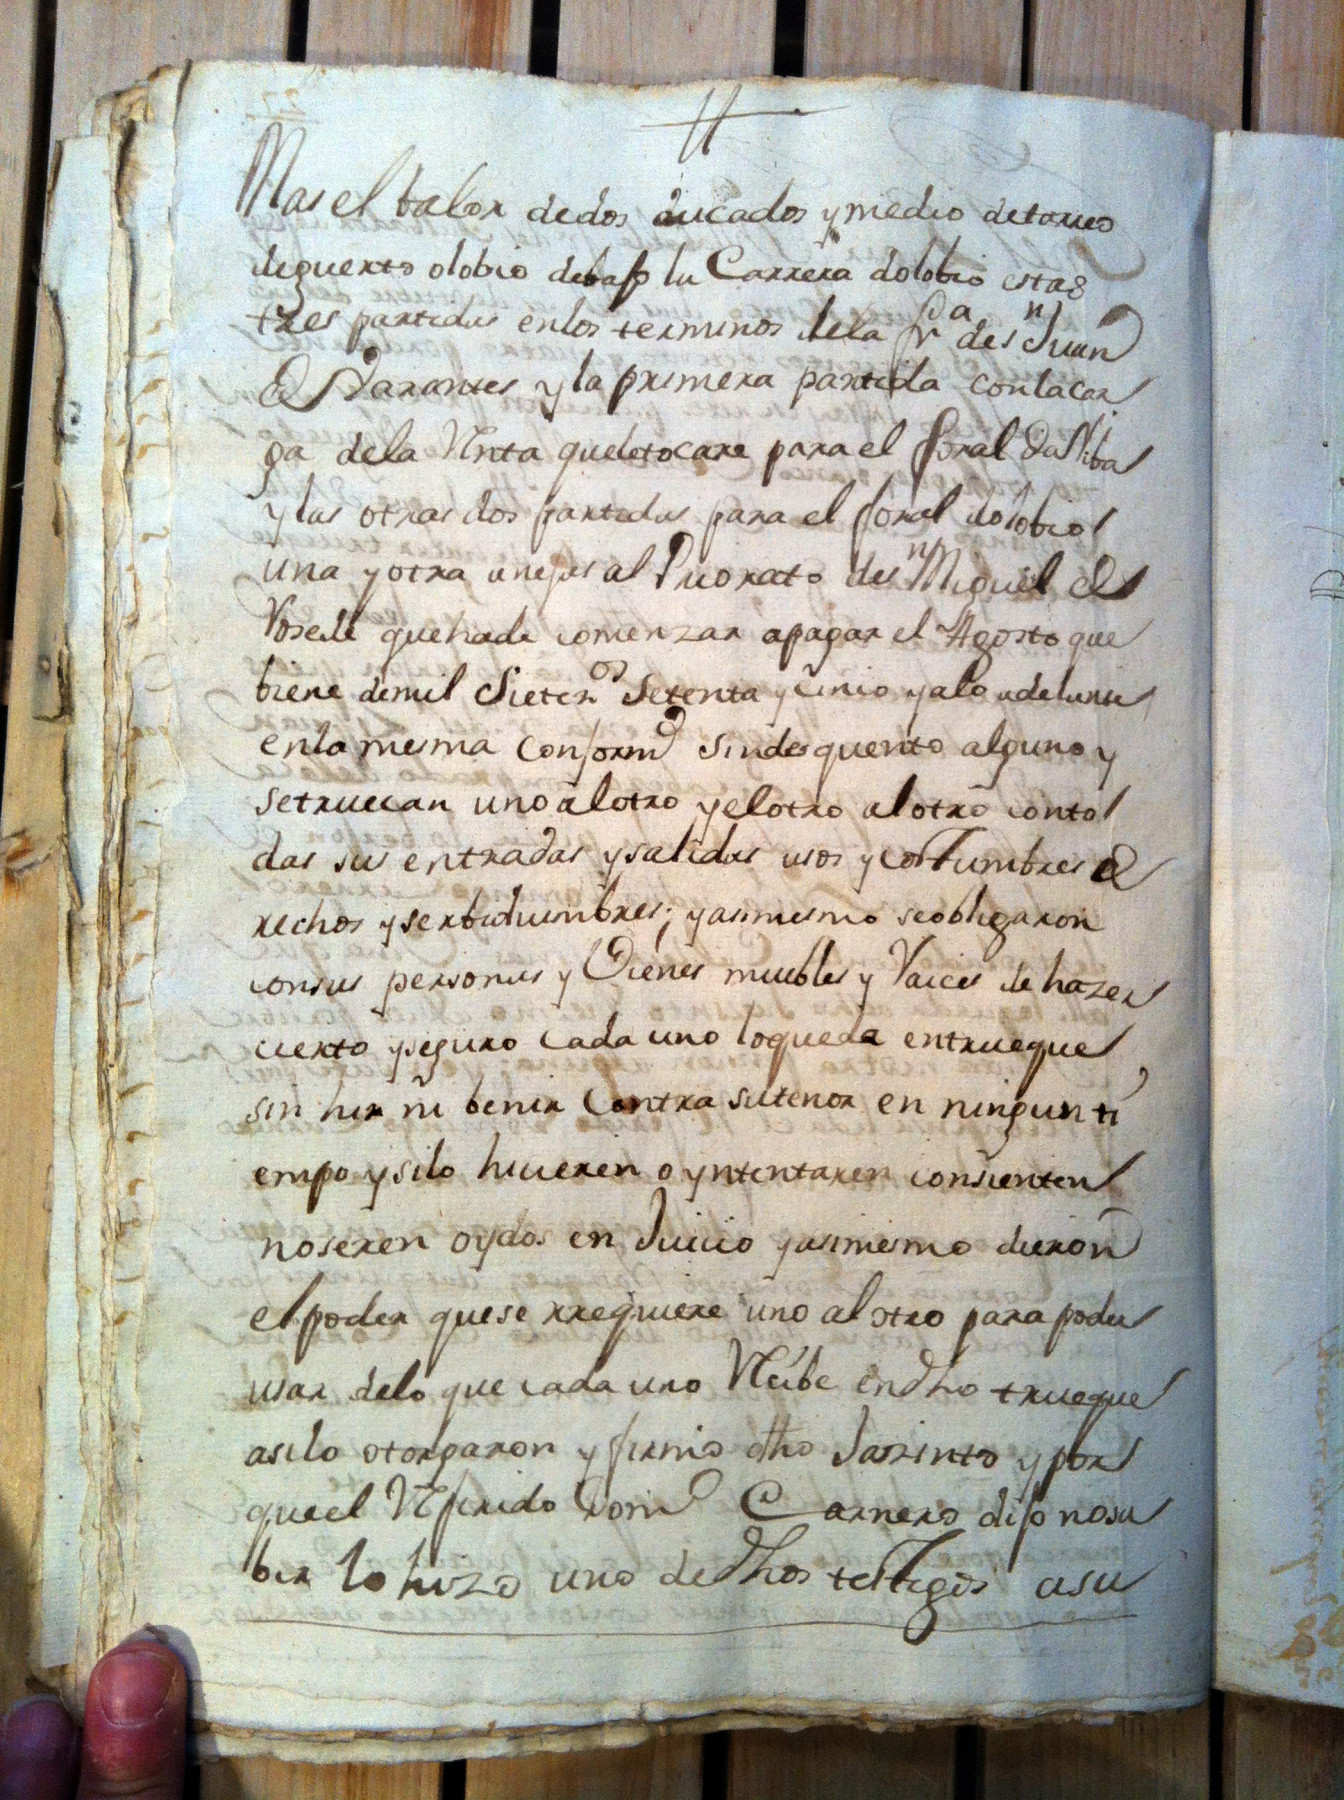 Mas el balor de dos ducados y medio de tarreo
de guerto olobio debajo la Carrera dolobio estas
tres partidas en los terminos de la fra de Sn Juan
de Barantes y la primera partida con la car
ga de la Renta que le tocare para el foral da Riba
y las otras dos partidas para el foral dolobio
una y otra anejas al Priorato de Sn Miguel de
Rosede que hade comenzar a pagar el Agosto que
biene de mil Sietezos Setenta y Cinco y alo adelante
en la mesma Conformd sin desquento alguno y
se truecan uno al otro y el otro al otro con to
das sus entradas y salidas usos y costumbres de
rechos y serbidumbres; y asimesmo se obligaron
con sus personas y Bienes muebles y Raices de hazer
cierto y seguro cada uno lo que da en trueque
sin hir ni benir Contra su tenor en ningun ti
empo y si lo hicieren o yntentaren consienten
no seren oydos en Juicio y asimesmo dieron
el poder que se rrequiere uno al otro para poder
usar de lo que cada uno Recibe en dho trueque
asi lo otorgaron y firmo dho Jazinto y por
que el Referido Domo Carnero dijo no sa
ber lo hizo uno de dhos testigos a su